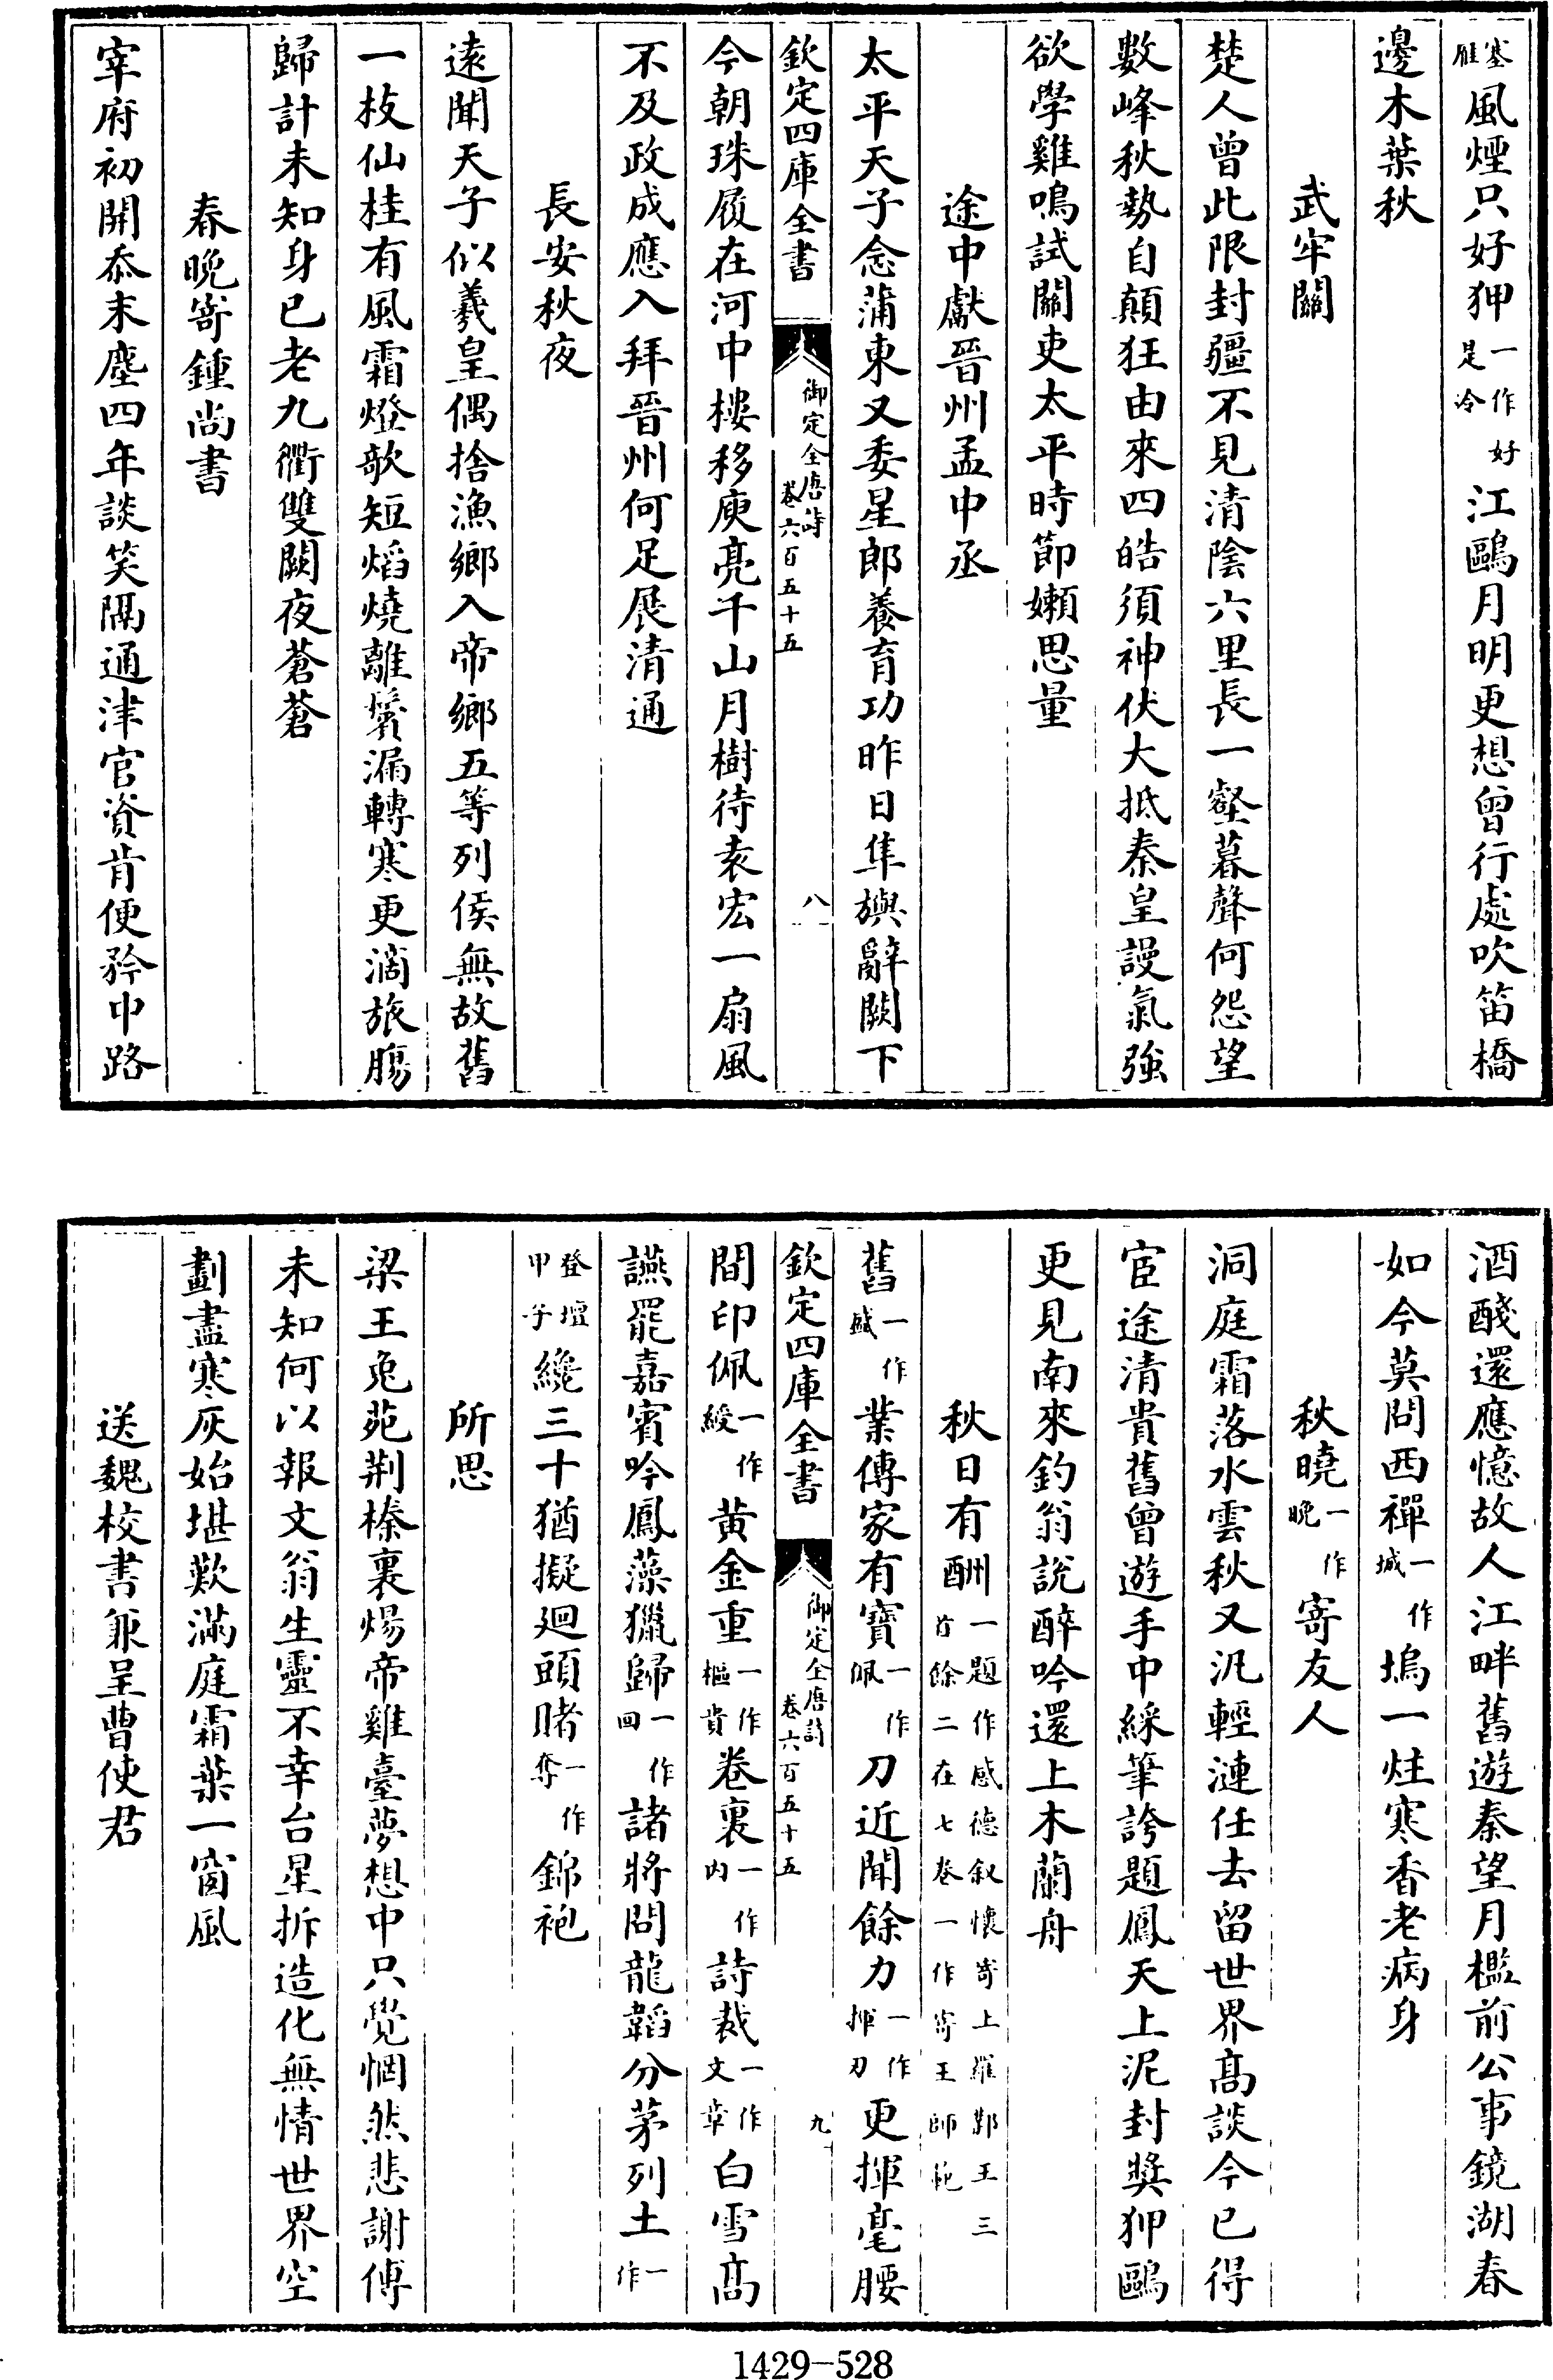 塞雁風煙只好狎一作好是冷江鷗月明更想曾行處吹笛橋
邊木葉秋
武牢關
楚人曾此限封疆不見清陰六里長一壑暮聲何怨望
數峰秋勢自顛狂由來四皓須神伏大抵秦皇謾氣強
欲學雞鳴試關吏太平時節嬾思量
途中獻晉州孟中丞
太平天子念蒲東又委星郎養育功昨日隼旟辭闕下
欽定四庫全書
御定全唐詩
卷六百五十五
八
今朝珠履在河中樓移庾亮千山月樹待袁宏一扇風
不及政成應入拜晉州何足展清通
長安秋夜
遠聞天子似羲皇偶捨漁鄉入帝鄉五等列侯無故舊
一枝仙桂有風霜燈欹短熖燒離鬢漏轉寒更滴旅腸
歸計未知身已老九衢雙闕夜蒼蒼
春晚寄鍾尚書
宰府初開忝末塵四年談笑隔通津官資肯便矜中路
酒醆還應憶故人江畔舊遊秦望月檻前公事鏡湖春
如今莫問西禪一作城塢一炷寒香老病身
秋曉一作晚寄友人
洞庭霜落水雲秋又汎輕漣任去留世界髙談今已得
宦途清貴舊曾遊手中綵筆誇題鳳天上泥封奬狎鷗
更見南來釣翁說醉吟還上木蘭舟
秋日有酬一題作感德叙懷寄上羅鄴王三首餘二在七卷一作寄王師範
舊一作盛業傳家有寶一作佩刀近聞餘力一作揮刃更揮毫腰
欽定四庫全書
御定全唐詩
卷六百五十五
九
間印佩一作綬黄金重一作樞貴卷裏一作内詩裁一作文章白雪髙
讌罷嘉賓吟鳳藻獵歸一作回諸將問龍韜分茅列土一作
登壇甲子纔三十猶擬廻頭賭一作奪錦袍
所思
梁王兔苑荆榛裏煬帝雞臺夢想中只覺惘然悲謝傅
未知何以報文翁生靈不幸台星拆造化無情世界空
劃盡寒灰始堪歎滿庭霜葉一窗風
送魏校書兼呈曹使君
1429-528